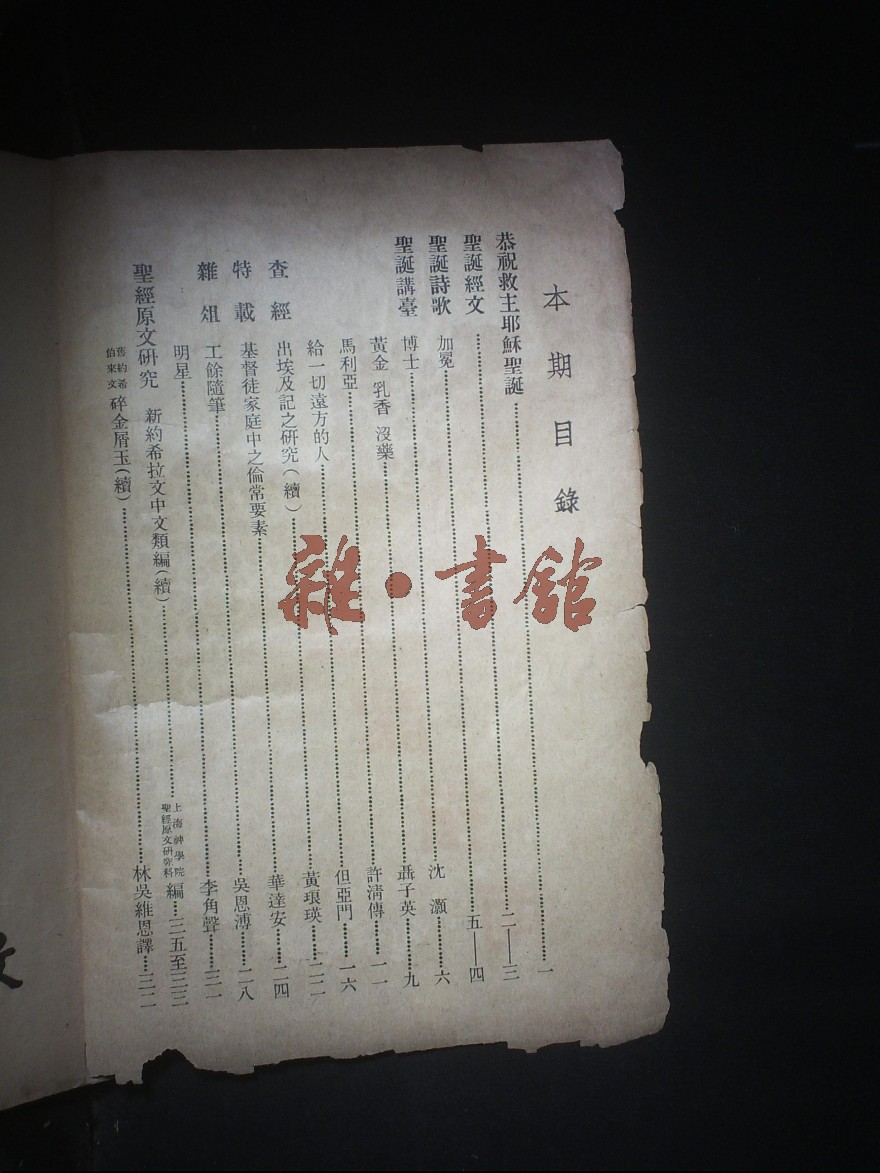 本期目錄
恭祝救主耶穌聖誕……一
聖誕經文……二——三
聖誕詩歌 加冕……五——四
聖誕講臺 博士……沈灝……六
黃金 乳香 沒藥……聶子英……九
馬利亞……許清傳……一一
給一切遠方的人……但亞門……一六
查經 出埃及記之研究(續)……黃琅瑛……二二
特載 基督徒家庭中之倫常要素……華達安……二四
雜俎 工餘隨筆……吳恩溥……二八
明星……李角聲……三一
聖經原文研究 新約希拉文中文類編(續)……上海神學院聖經原文研究科編……三五至三三
舊約希伯來文 碎金屑玉(續)……林吳維恩譯……三二
雜·書館